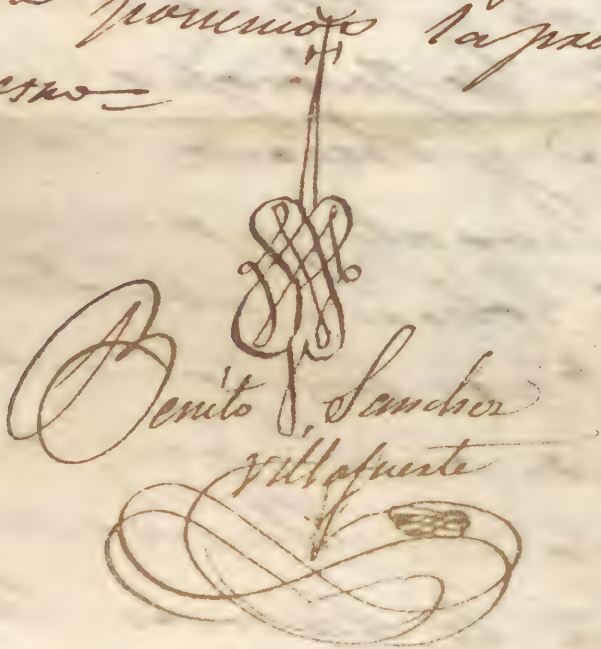 ponemos la
Benito Sanchez
Villafuerte